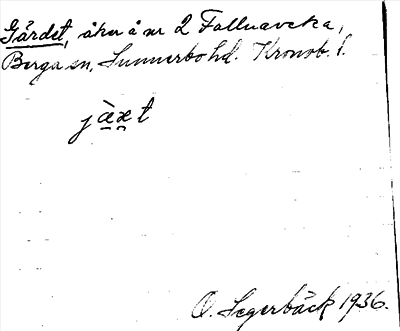 Gärdet, åker å nr 2 Fallnaveka,
Berga sn, Sunnerbo hd. Kronob. l.
jä̀x̱t
O. Segerbäck 1936.